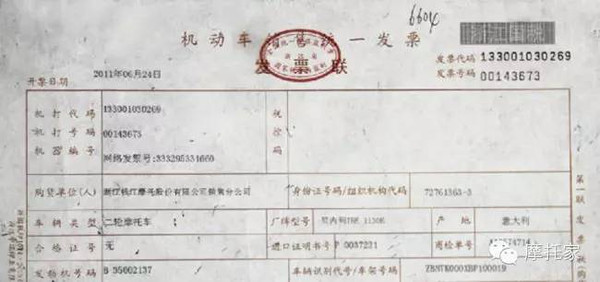 6604
机动车销售统一发票
发票联
发票代码 133001030269
发票号码 00143673
开票日期 2011年06月24日
机打代码 133001030269
机打号码 00143673
机器编号
网络发票号:333295331660
税控码
购货单位(人) 浙江钱江摩托股份有限公司销售分公司 身份证号码/组织机构代码 72761363-3
车辆类型 二轮摩托车 厂牌型号 产地 意大利
合格证号 无 进口证明书号 商检单号
发动机号 车辆识别代号/车架号码
第一联
发票联
摩托家